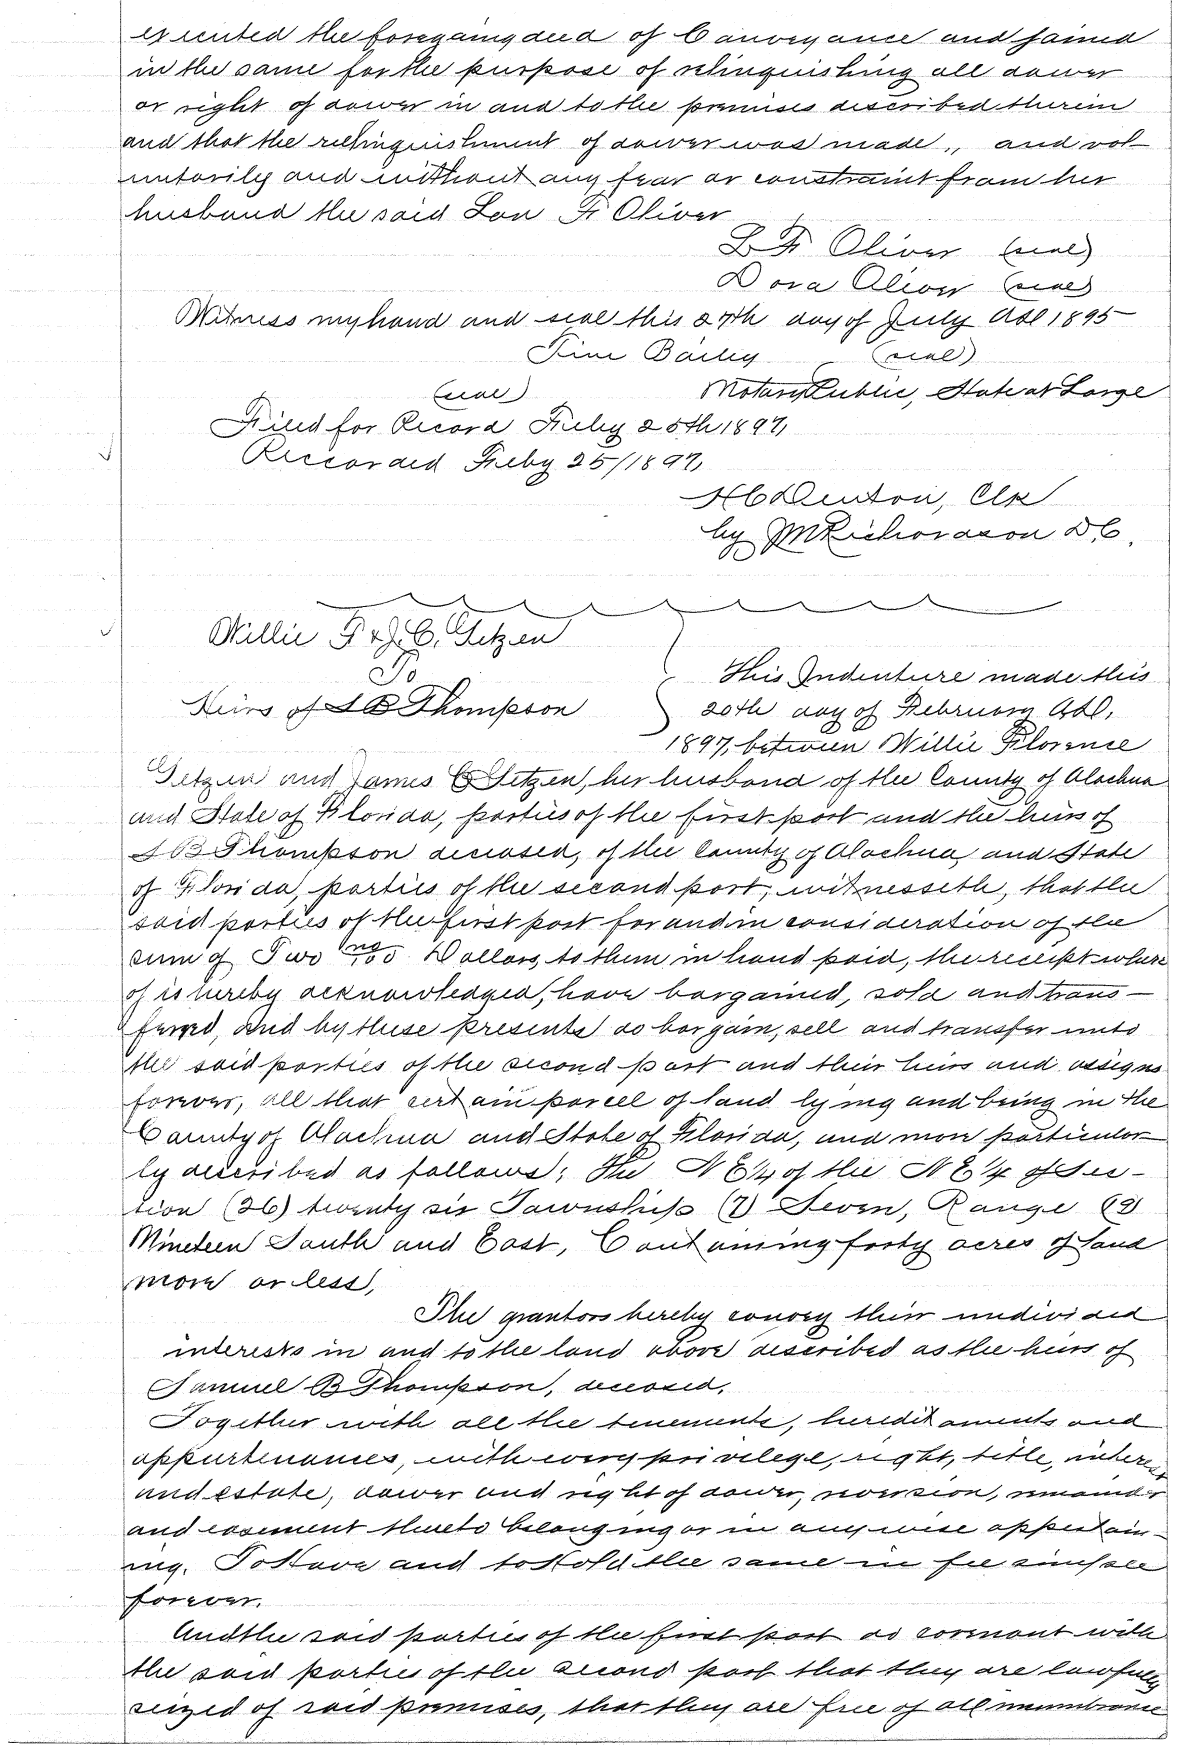 executed the foregoing deed of Conveyance and joined
in the same for the purpose of relinquishing all dower
or right of dower in and to the premises described therein
and that the relinquishment of dower was made,, and vol-
untarily and without any fear or constraint from her
husband the said Lon F. Oliver
L F. Oliver (seal)
Dora Oliver (seal)
Witness my hand and seal this 27th day of July AD 1895
Tim Bailey (seal)
(seal) Notary Public, State at Large
Filed for Record Feby 25th 1897,
Recorded Feby 25/1897,
H C Denton, Clk
by J M Richardson D.C.
Willie F & J. C. Getzen
To
Heirs of S B Thompson
This Indenture made this
20th day of February A.D.,
1897, between Willie Florence
Getzen and James C Getzen, her husband of the County of Alachua
and State of Florida, parties of the first part and the heirs of
S B Thompson deceased, of the County of Alachua, and State
of Florida, parties of the second part, witnesseth, that the
said parties of the first part for and in consideration of the
sum of Two no/100 Dollars, to them in hand paid, the receipt where
of is hereby acknowledged, have bargained, sold and trans-
fered, and by these presents do bargain, sell and transfer unto
the said parties of the second part and their heirs and assigns
forever, all that certain parcel of land lying and being in the
County of Alachua and State of Florida, and more particular-
ly described as follows: The N E 1/4 of the N E 1/4 of Sec-
tion (26) twenty six Township (7) Seven, Range (19)
Nineteen South and East, Containing forty acres of land
more or less,
The grantors hereby convey their undivided
interests in and to the land above described as the heirs of
Samuel B Thompson, deceased,
Together with all the tenements, hereditaments and
appurtenances, with every privilege, right, title, interest
and estate, dower and right of dower, reversion, remainder
and easement thereto belonging or in anywise appertain-
ing. To Have and to Hold the same in fee simple
forever.
And the said parties of the first part do covenant with
the said parties of the second part that they are lawfully
seized of said premises, that they are free of all incumbrance